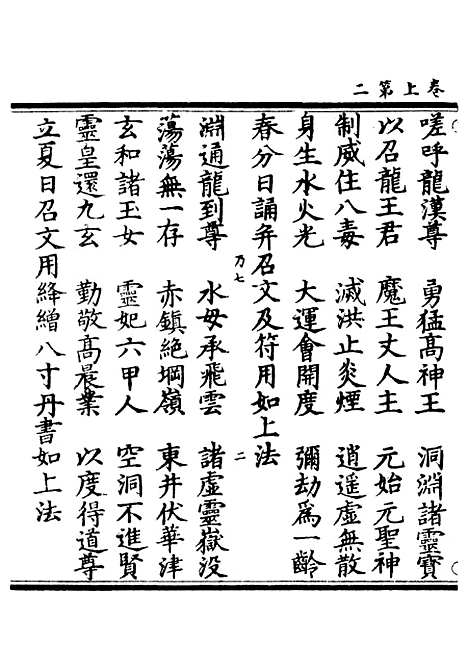 卷上第二
嗟呼龍漢尊　勇猛高神王　洞淵諸靈寶
以召龍王君　魔王丈人主　元始元聖神
制威住八毒　滅洪止炎煙　逍遥虛無散
身生水火光　大運會開度　彌劫爲一齡
春分日誦弁召文及符用如上法
乃七　二
淵通龍到尊　水母承飛雲　諸虛靈嶽没
蕩蕩無一存　赤鎮絶堈嶺　東井伏華津
玄和諸玉女　靈妃六甲人　空洞不進賢
靈皇還九玄　勤敬髙晨業　以度得道尊
立夏日召文用絳繒八寸丹書如上法